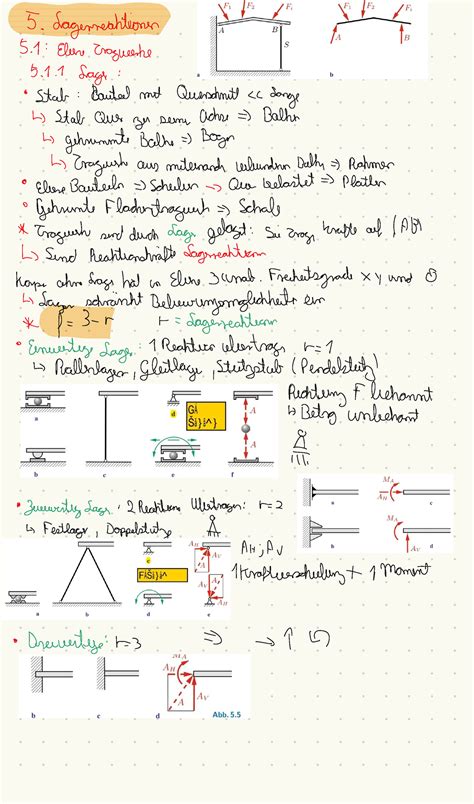 5. Lagerreaktionen
F₁ F₂ F₃
A B S
a
F₁ F₂ F₃
A B
b
5.1: Ebene Tragwerke
5.1.1 Lager:
• Stab: Bauteil mit Querschnitt << Länge
↳ Stab Quer zu seiner Achse => Balken
↳ gekrümmte Balken => Bogen
↳ Tragwerk aus miteinander verbunden Balken => Rahmen
• Ebene Bauteile => Scheiben → Quer belastet => Platten
• Gekrümmte Flächentragwerk => Schale
* Tragwerk sind durch Lager gelagert: Sie Kräfte auf (A, B)
↳ Sind Reaktionskräfte Lagerreaktionen
Körper ohne Lager hat in Ebene 3 unab. Freiheitsgrade x y und
↳ Lager schränkt Bewegungsmöglichkeiten ein
* f = 3 - r r = Lagerreaktionen
• Einwertige Lager: 1 Reaktion übertragen r = 1
↳ Rollenlager, Gleitlager, Stützstab (Pendelstütze)
Richtung F bekannt
↳ Betrag unbekannt
a b c d e f
A A
• Zweiwertige Lager: 2 Reaktionen übertragen: r = 2
↳ Festlager, Doppelstütze
A_H; A_V
1 Kraftverschiebung + 1 Moment
a b c d
M_A A_H
M_A A_V
a b c d e
A_H A A_V
A_V A A_H
• Dreiwertige: r = 3 => → ↑
b c d
M_A A_H A A_V
Abb. 5.5